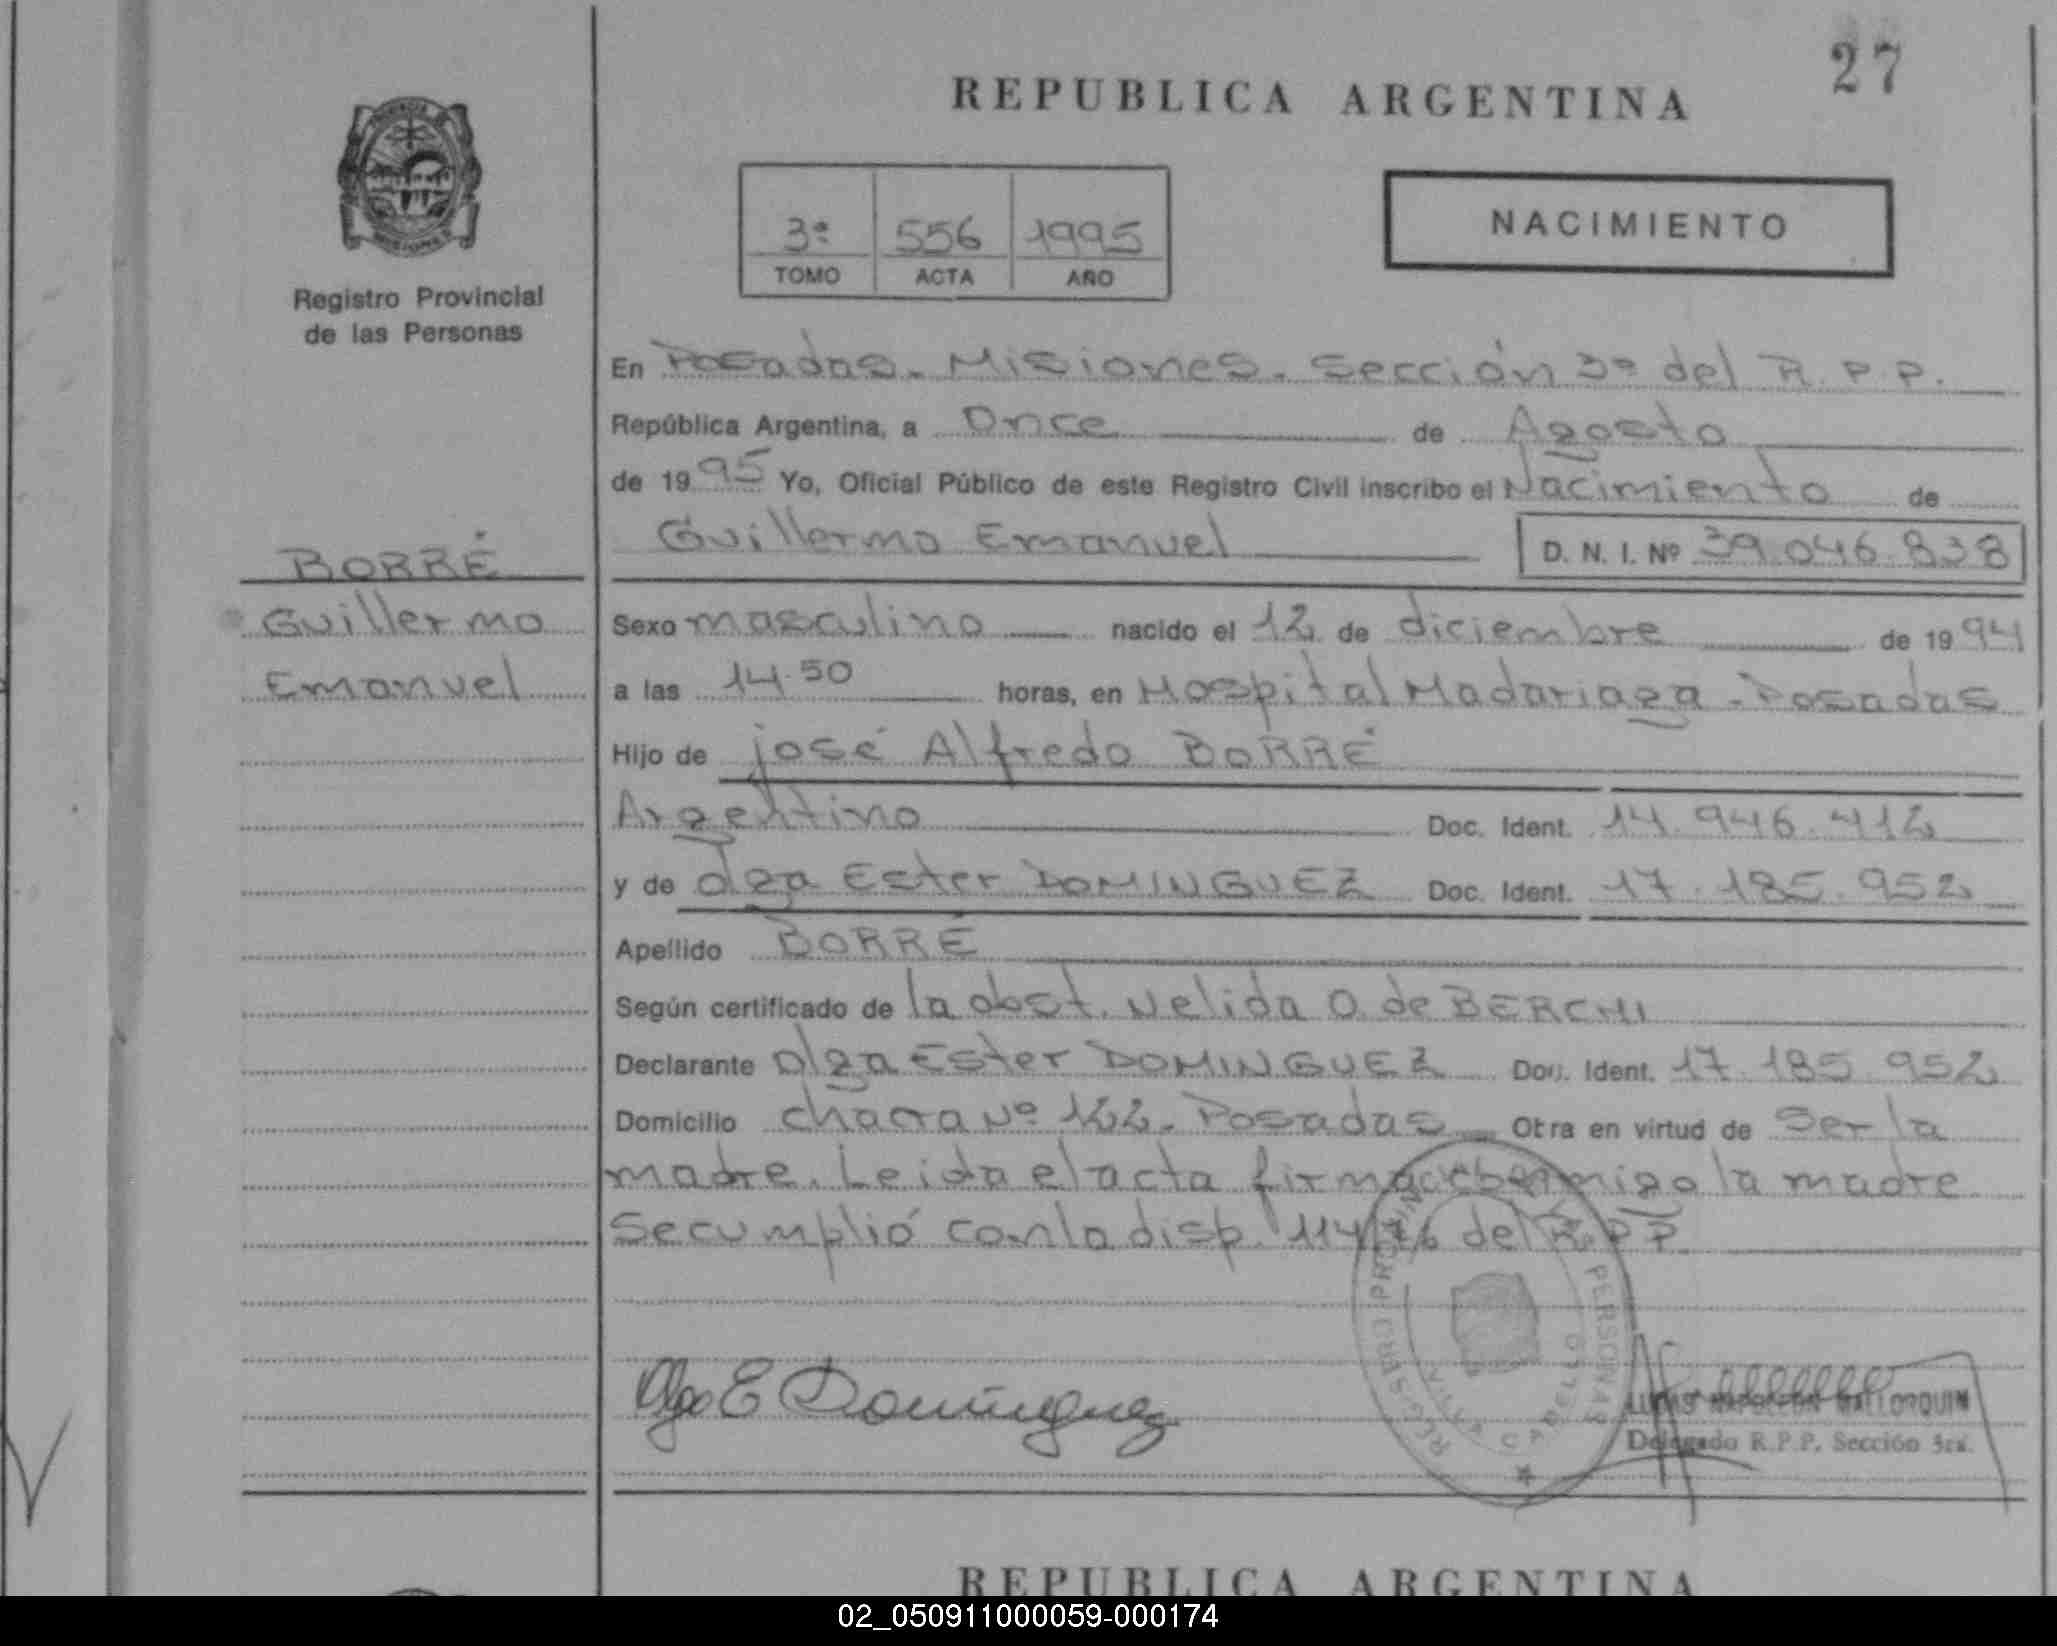 27
REPUBLICA ARGENTINA
3º 556 1995
TOMO ACTA AÑO
NACIMIENTO
Registro Provincial
de las Personas
En Posadas. Misiones. Sección 3º del R.P.P.
República Argentina, a Once de Agosto
de 1995 Yo, Oficial Público de este Registro Civil inscribo el Nacimiento de
Guillermo Emanuel D. N. I. Nº 39.046.838
BORRÉ
Guillermo
Emanuel
Sexo masculino nacido el 12 de diciembre de 1994
a las 14.50 horas, en Hospital Madariaga - Posadas
Hijo de josé Alfredo BORRÉ
Argentino Doc. Ident. 14.946.412
y de Olga Ester DOMINGUEZ Doc. Ident. 17.185.952
Apellido BORRÉ
Según certificado de la obst. Nelida O. de BERCHI
Declarante Olga Ester DOMINGUEZ Doc. Ident. 17.185.952
Domicilio chacra Nº 122. Posadas Otra en virtud de Ser la
madre. Leida el acta firma conmigo la madre
Se cumplió con la disp. 114/76 del R.P.P.
Olga E Dominguez
REGISTRO PROVINCIAL PERSONAS
VILLA CABELLO
LUCAS NAPOLEON MALLORQUIN
Delegado R.P.P. Sección 3ra.
REPUBLICA ARGENTINA
02_050911000059-000174